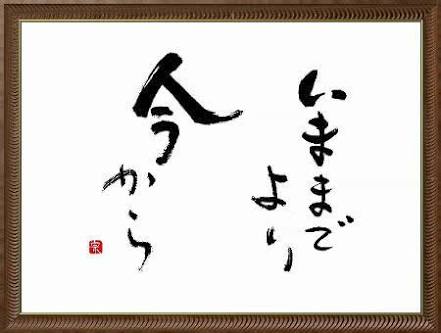 いままで
より
今から
宗